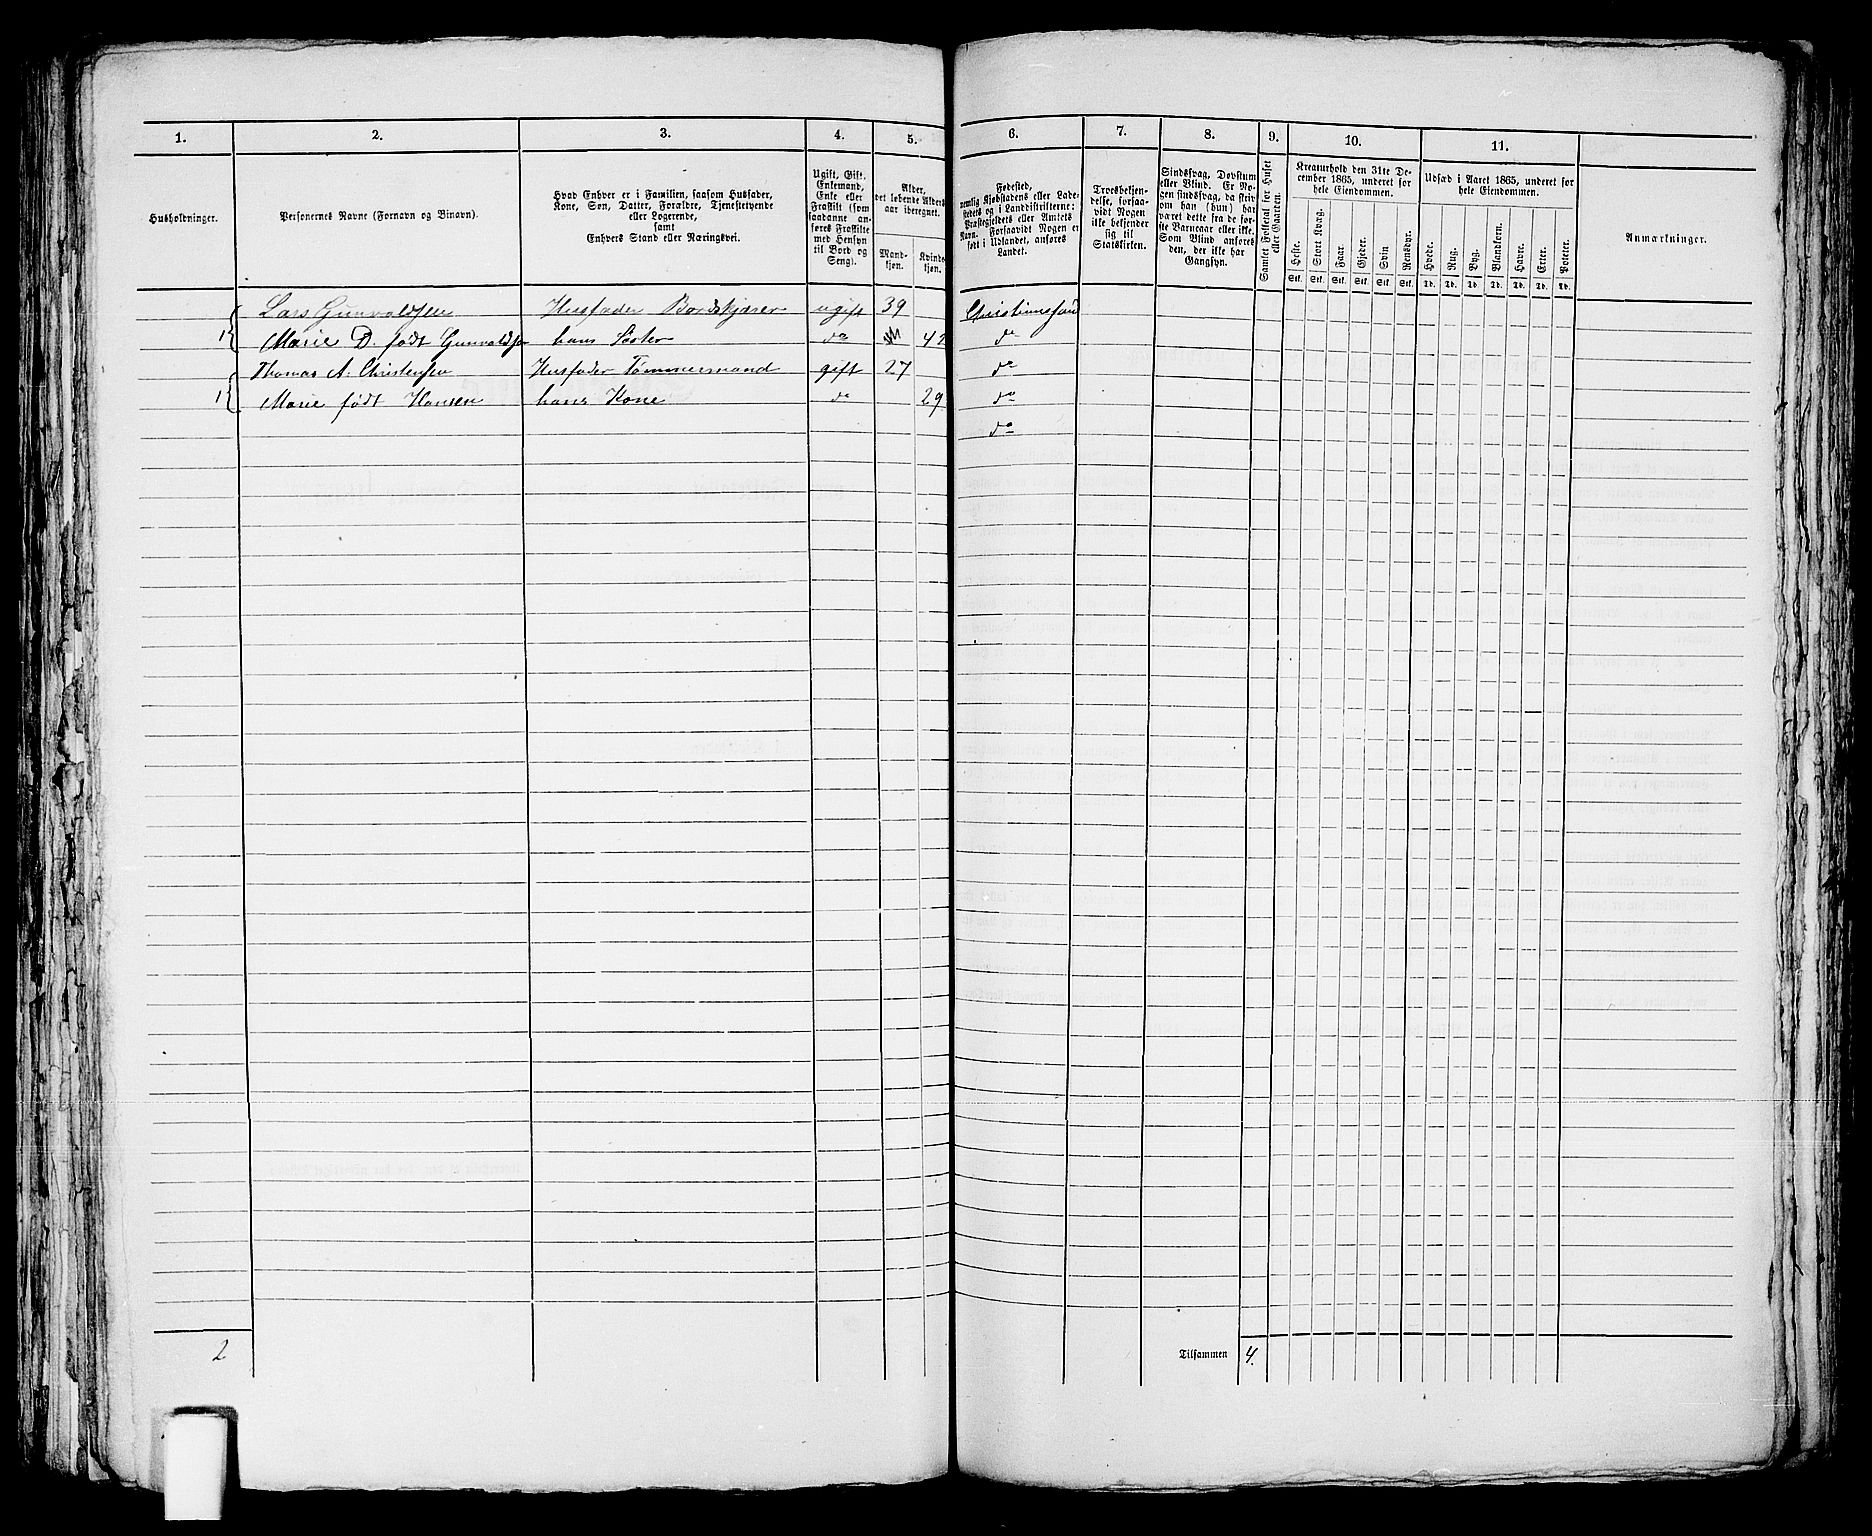 1. 2. 3. 4. 5. 6. 7. 8. 9. 10. 11.
Husholdninger.
Personernes Navne (Fornavn og Binavn).
Hvad Enhver er i Familien, saasom Husfader,
Kone, Søn, Datter, Forældre, Tjenestetyende
eller Logerende,
samt
Enhvers Stand eller Næringsvei.
Ugift, Gift,
Enkemand,
Enke eller
Fraskilt (som
saadanne an-
føres Fraskilte
med Hensyn
til Bord og
Seng).
Alder,
det løbende Alders-
aar iberegnet.
Mand-
kjøn.
Kvinde-
kjøn.
Fødested,
nemlig Kjøbstadens eller Lade-
stedets og i Landdistrikterne:
Præstegjeldets eller Amtets
Navn. Forsaavidt Nogen er
født i Udlandet, anføres
Landet.
Troesbekjen-
delse, forsaa-
vidt Nogen
ikke bekjender
sig til
Statskirken.
Sindssvag, Døvstum
eller Blind. Er No-
gen sindssvag, da skriv
om han (hun) har
været dette fra de før-
ste Barneaar eller ikke.
Som Blind anføres
den, der ikke har
Gangsyn.
Samlet Folketal for Huset
eller Gaarden.
Kreaturhold den 31te De-
cember 1865, underet for
hele Eiendommen.
Heste.
Stort Kvæg.
Faar.
Gjeder.
Svin
Rensdyr.
Stk. Stk. Stk. Stk. Stk. Stk.
Udsæd i Aaret 1865, underet for
hele Eiendommen.
Hvede.
Rug.
Byg.
Blandkorn.
Havre.
Erter.
Poteter.
Td. Td. Td. Td. Td. Td. Td.
Anmærkninger.
Lars Gunvaldsen Husfader Bordskjærer ugift 39 Christianssand
1 Marie D. født Gunvaldsen hans Søster do 42 do
Thomas A. Christensen Husfader Tømmermand gift 27 do
1 Marie født Hansen hans Kone do 29 do
do
2 Tilsammen 4.